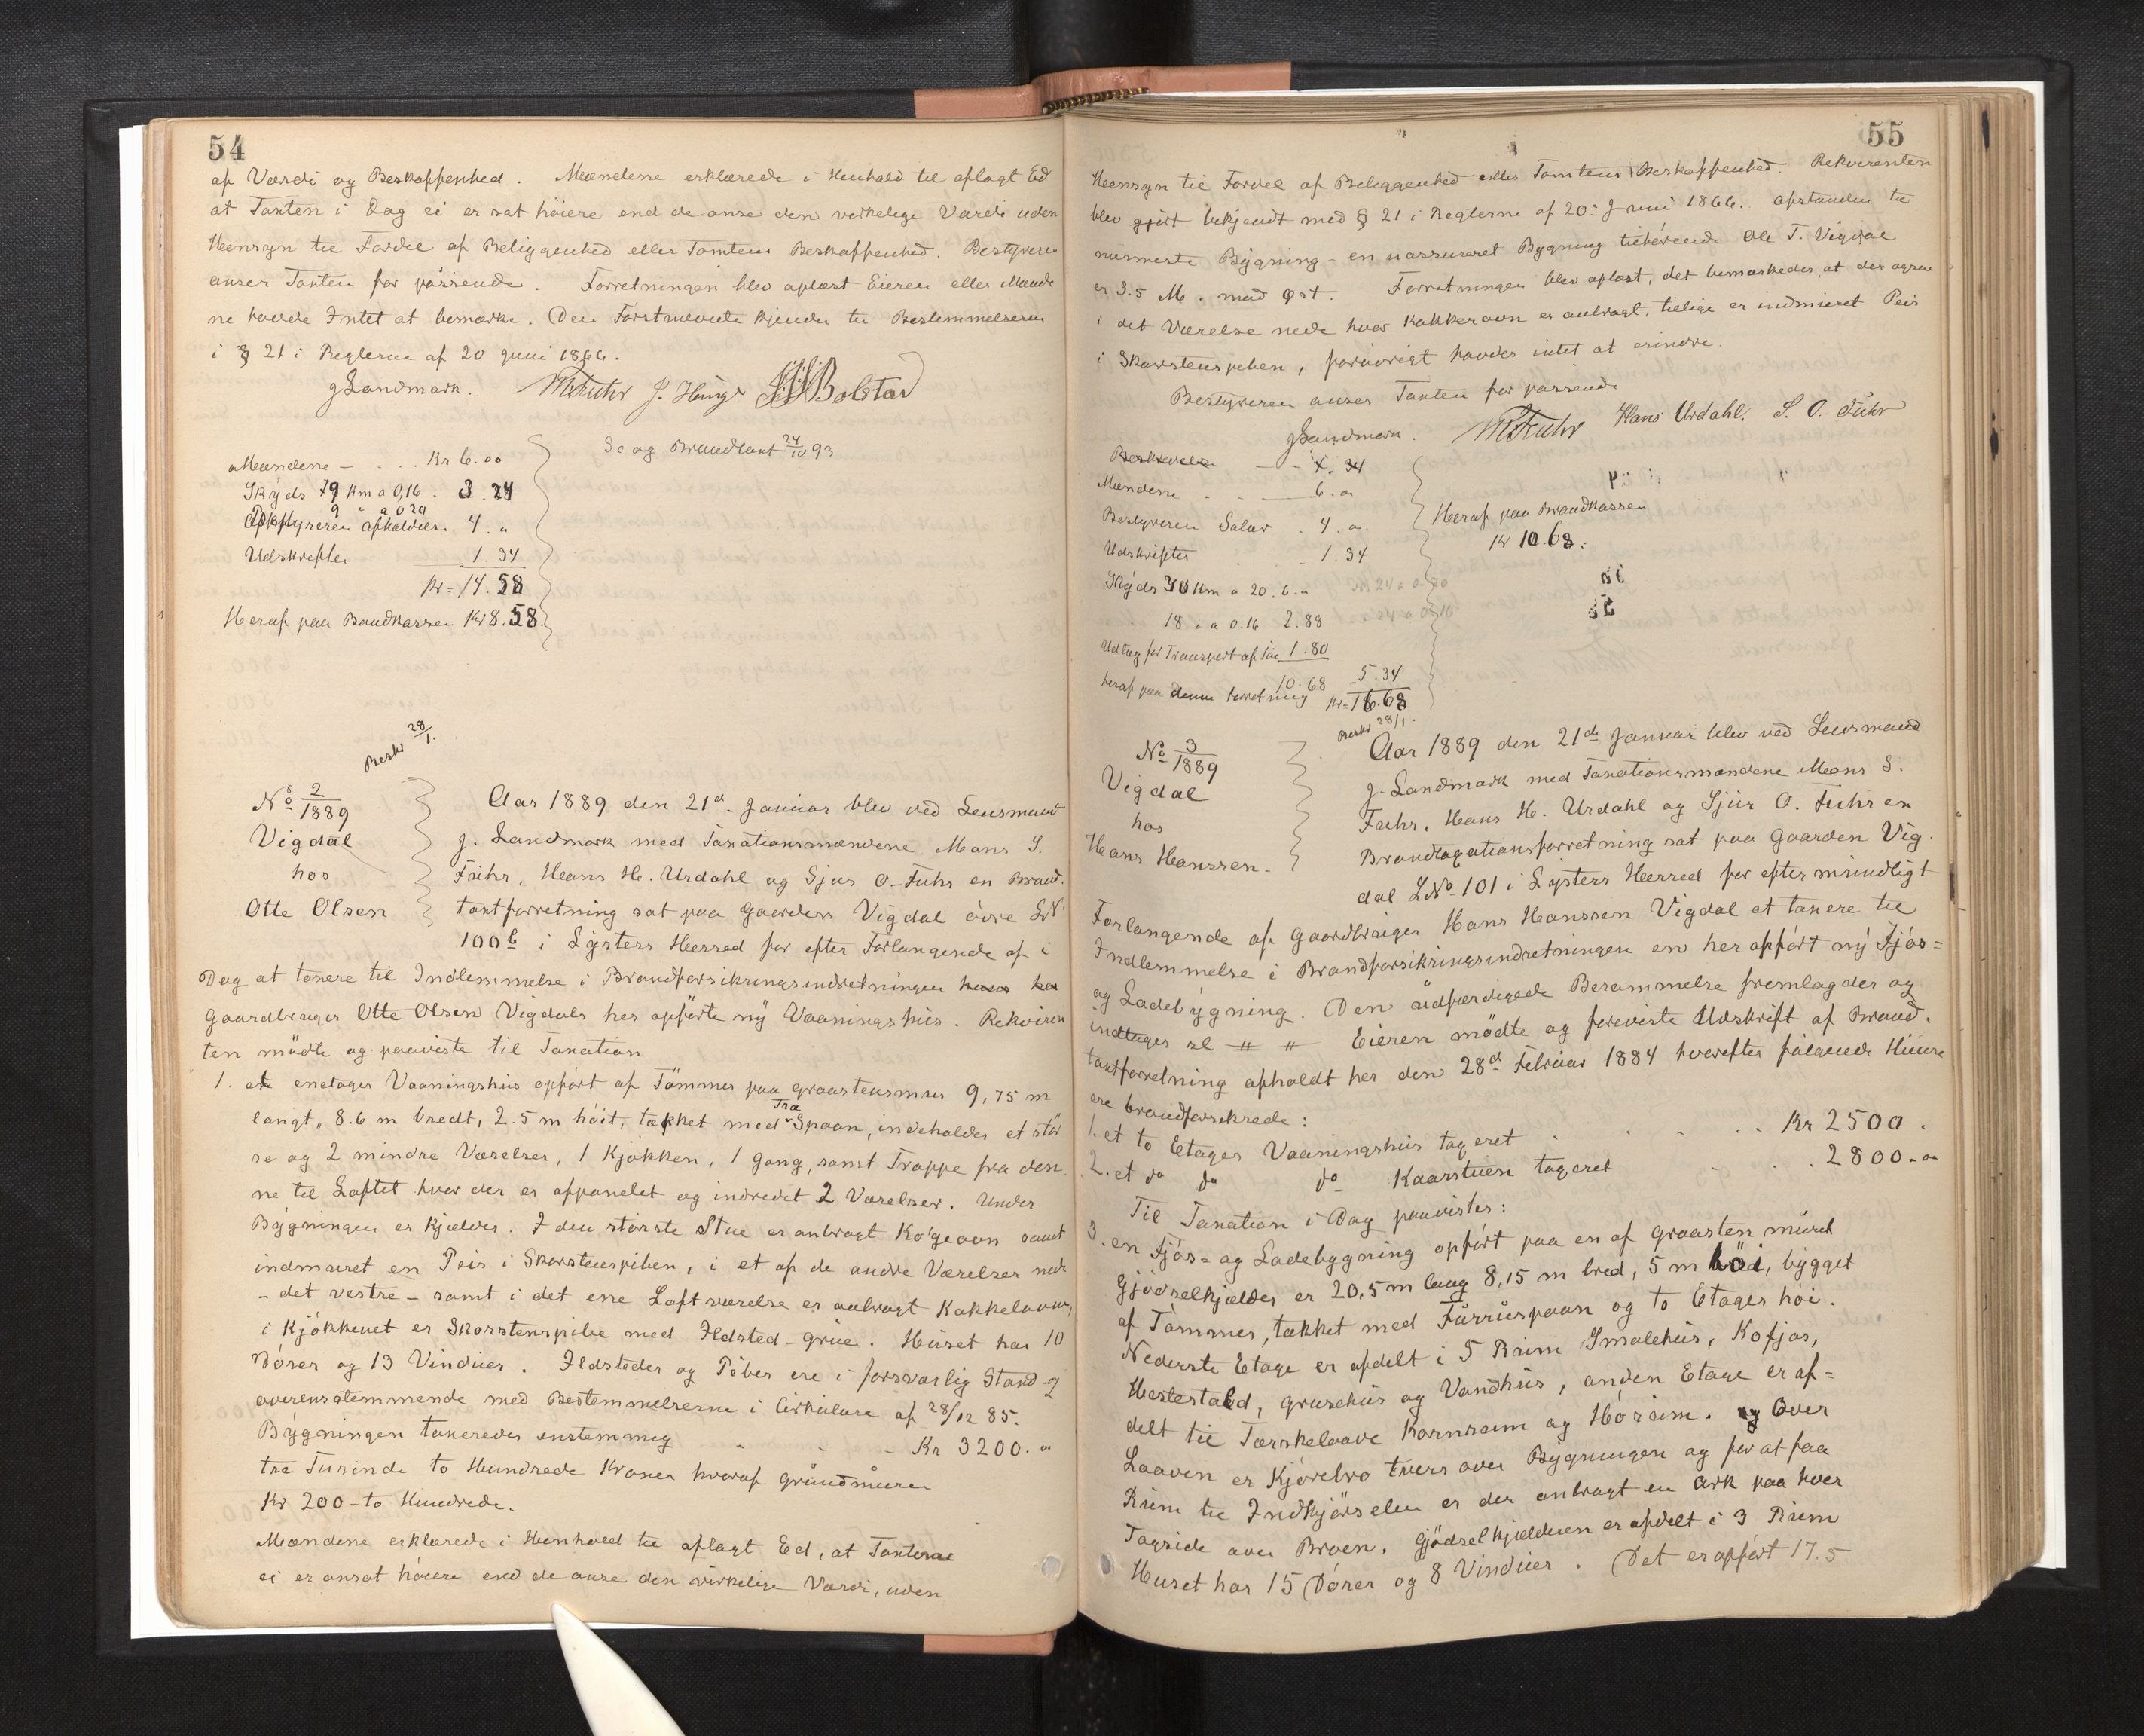 54
af Værdi og Beskaffenhed. Mændene erklærede i Henhold til aflagt Ed
at Taxten i Dag ei er sat höiere end de anse den virkelige Værdi uden
Hensyn til Fordel af Beliggenhed eller Tomtens Beskaffenhed. Bestyreren
anser Taxten for passende. Forretningen blev oplæst Eieren eller Mænde
ne havde Intet at bemærke. Den Förstnævnte kjender til Bestemmelserne
i § 21 i Reglerne af 20 Juni 1866.
J Landmark. J. Hinge Bolstad
Se og Brandtaxt 24/10 93.
Mændene - . . . Kr 6.00
Skyds 79 Km a 0,16 . 3.24
9 " a 0 20
Bestyreren afholdelse 4. "
Udskrifter 1. 34
Kr = 14.58
Heraf paa Brandkassen Kr 8.58.
Berkr 28/1.
No 2/1889
Vigdal
hos
Otte Olsen
Aar 1889 den 21de Januar blev ved Lensmand
J. Landmark med Taxationsmændene Mons S.
Fuhr, Hans H. Urdahl og Sjur O. Fuhr en Brand-
taxtforretning sat paa Gaarden Vigdal övre LNo
100b i Lysters Herred for efter Forlangende af i
Dag at taxere til Indlemmelse i Brandforsikringsindretningen
Gaardbruger Otte Olsen Vigdals her opförte ny Vaaningshus. Rekviren
ten mödte og paaviste til Taxation
1. et enetages Vaaningshus opfört af Tömmer paa graastensmur 9,75 m
langt, 8.6 m bredt, 2.5 m höit, tækket med Træ Spaan, indeholder et stör
re og 2 mindre Værelser, 1 Kjökken, 1 Gang, samt Trappe fra den
ne til Loftet hvor der er afpanelet og indredet 2 Værelser. Under
Bygningen er Kjelder. I den störste Stue er anbragt Kogeovn samt
indmuret en Peis i Skorstenspiben, i et af de andre Værelser nede
- det vestre - samt i det ene Loftsværelse er anbragt Kakkelovne,
i Kjökkenet er Skorstenspibe med Ildsted - grue. Huset har 10
Dörer og 13 Vinduer. Ildsteder og Piber ere i forsvarlig Stand og
overensstemmende med Bestemmelserne i Cirkulære af 28/12 85.
Bygningen taxeredes enstemmig - - - Kr 3200. "
tre Tusinde to Hundrede Kroner hvoraf grundmuren
Kr 200 - to Hundrede.
Mændene erklærede i Henhold til aflagt Ed, at Taxterne
ei er ansat höiere end de anse den virkelige Værdi, uden
55
Hensyn til Fordel af Beliggenhed eller Tomtens Beskaffenhed. Rekvirenten
blev gjort bekjendt med § 21 i Reglerne af 20de Juni 1866. Afstanden til
nærmeste Bygning - en uassureret Bygning tilhörende Ole T. Vigdal
er 3.5 M. mod Øst. Forretningen blev oplæst, det bemærkedes, at der ogsaa
i det Værelse nede hvor Kakkelovn er anbragt, tillige er indmuret Peis
i Skorstenspiben, forövrigt havdes intet at erindre.
Bestyreren anser Taxten for passende
J Landmark. Hans Urdahl. S. O. Fuhr
Mændene . . 6. "
Bestyreren Salær . 4. "
Udskrifter 1.34
Skyds 30 Km a 20. 6. "
18 " a 0.16 2.88
Udlæg for Transport af 1.80
10.68 5.34
heraf paa denne Forretning Kr = 16.68
Heraf paa Brandkassen
Kr 10.68.
Berkr 28/1.
No 3/1889
Vigdal
hos
Hans Hanssen.
Aar 1889 den 21de Januar blev ved Lensmand
J. Landmark med Taxationsmændene Mons S.
Fuhr, Hans H. Urdahl og Sjur O. Fuhr en
Brandtaxationsforretning sat paa Gaarden Vig-
dal LNo 101 i Lysters Herred for efter mundligt
Forlangende af Gaardbruger Hans Hanssen Vigdal at taxere til
Indlemmelse i Brandforsikringsindretningen en her opfört ny Fjös-
og Ladebygning. Den udfærdigede Berammelse fremlagdes og
indtages sl " " Eieren mödte og foreviste Udskrift af Brand-
taxtforretning afholdt her den 28de Februar 1884 hvorefter fölgende Huse
ere brandforsikrede:
1. et to Etages Vaaningshus taxeret . . . . Kr 2500.
2. et do do do Kaarstuen taxeret . . . 2800. "
Til Taxation i Dag paavistes:
3. en Fjös- og Ladebygning opfört paa en af graasten muret
Gjödselkjelder er 20,5 m lang 8,15 m bred, 5 m höi, bygget
af Tömmer, tækket med Furruspaan og to Etager höi.
Nederste Etage er afdelt i 5 Rum Smalehus, Kofjös,
Hestestald, grusehus og Vandhus, anden Etage er af-
delt til Tærskelaave Kornrum og Hörum. Over
Laaven er Kjörebro tvers over Bygningen og for at faa
Rum til Indkjörselen er der anbragt en Ark paa hver
Tagside over Broen. Gjödselkjelderen er afdelt i 3 Rum
Huset har 15 Dörer og 8 Vinduer. Det er opfört 17.5